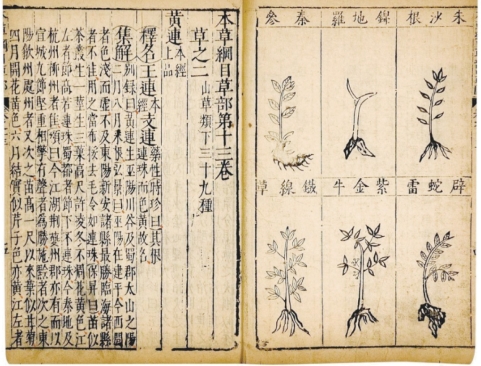 朱沙根
錦地羅
拳參
辟蛇雷
紫金牛
鐵線草
本草綱目草部第十三卷
草之二 山草類下三十九種
黃連 本經上品
釋名王連本經支連藥性時珍曰其根連珠而色黃故名
集解別錄曰黃連生巫陽川谷及蜀郡太山之陽二月八月采根弘景曰巫陽在建平今西間
者色淺而虛不及東陽新安諸縣最勝臨海諸縣
者不佳用之當布裹挼去毛令如連珠保昇曰苗似
茶叢生一莖生三葉高尺許凌冬不凋花黃色江
左者節高若連珠蜀都者節下不連珠今秦地及
杭州柳州者佳頌曰今江湖荊夔州郡亦有而以
宣城九節堅重相擊有聲者為勝施黔者次之東
陽歙州處州者又次之苗高一尺以來葉似甘菊
四月開花黃色六月結實似芹子色亦黃江左者